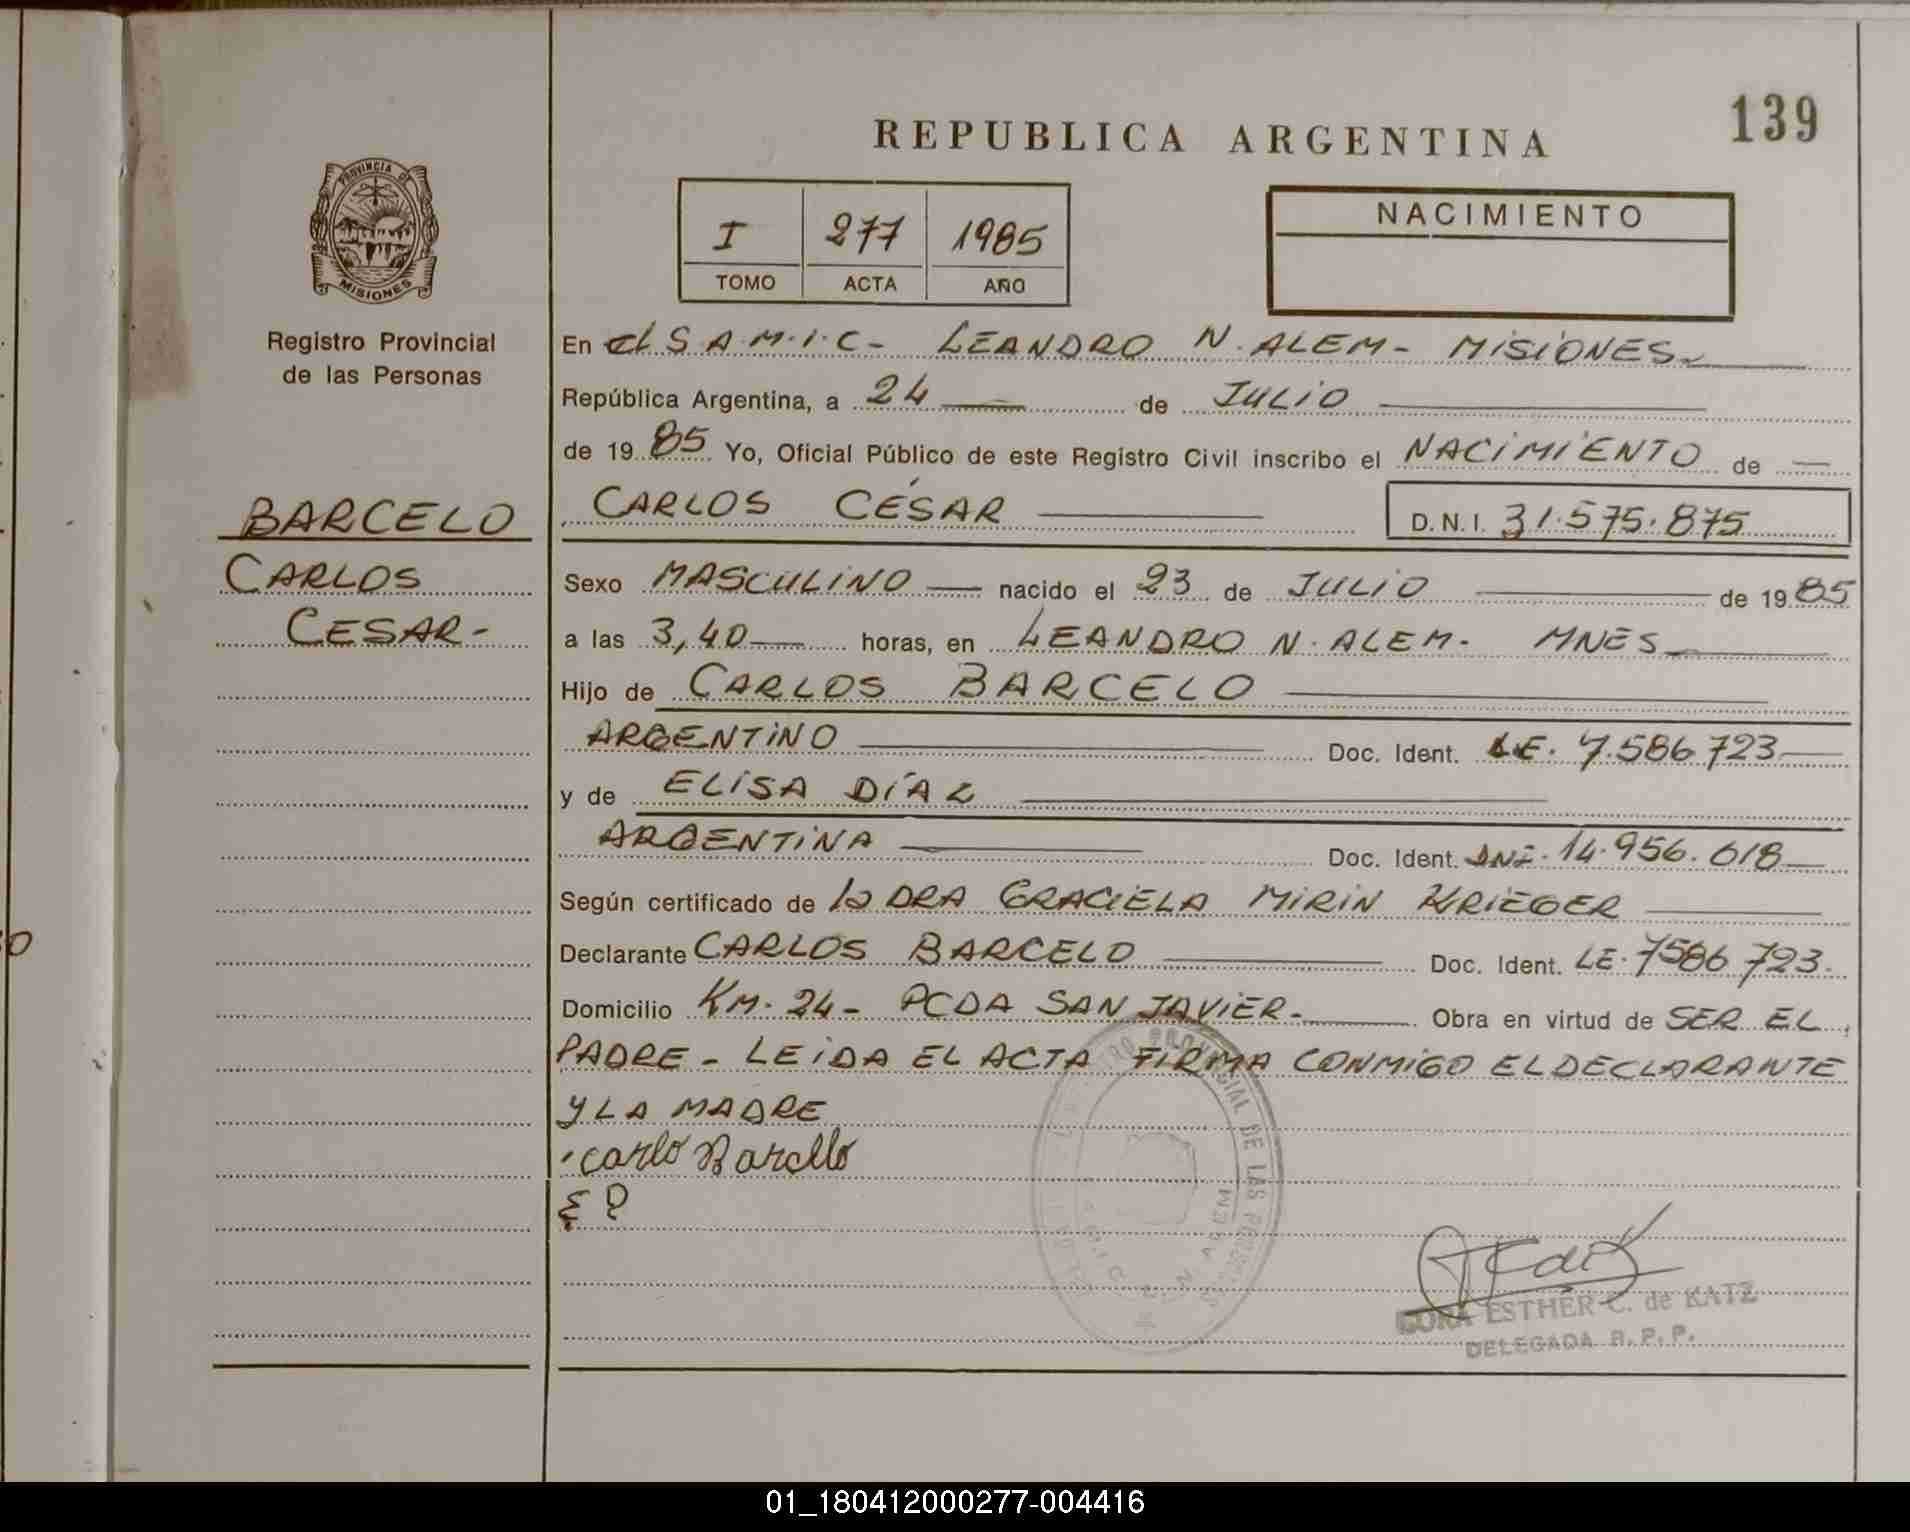 REPUBLICA ARGENTINA
139
PROVINCIA DE
MISIONES
Registro Provincial
de las Personas
I 277 1985
TOMO ACTA AÑO
NACIMIENTO
En el S.A.M.I.C- LEANDRO N. ALEM- MISIONES
República Argentina, a 24 de JULIO
de 1985 Yo, Oficial Público de este Registro Civil inscribo el NACIMIENTO de
CARLOS CÉSAR D.N.I. 31.575.875
BARCELO
CARLOS
CESAR-
Sexo MASCULINO nacido el 23 de JULIO de 1985
a las 3,40 horas, en LEANDRO N. ALEM- MNES
Hijo de CARLOS BARCELO
ARGENTINO Doc. Ident. L.E. 7.586.723
y de ELISA DÍAZ
ARGENTINA Doc. Ident. DNI. 14.956.618
Según certificado de la DRA GRACIELA MIRIN KRIEGER
Declarante CARLOS BARCELO Doc. Ident. LE. 7586.723.
Domicilio KM. 24- PCDA SAN JAVIER- Obra en virtud de SER EL
PADRE- LEIDA EL ACTA FIRMA CONMIGO EL DECLARANTE
Y LA MADRE
carlo Barcllo
PROVINCIAL DE LAS PERSONAS
N. ALEM
CORA ESTHER C. de KATZ
DELEGADA R.P.P.
01_180412000277-004416